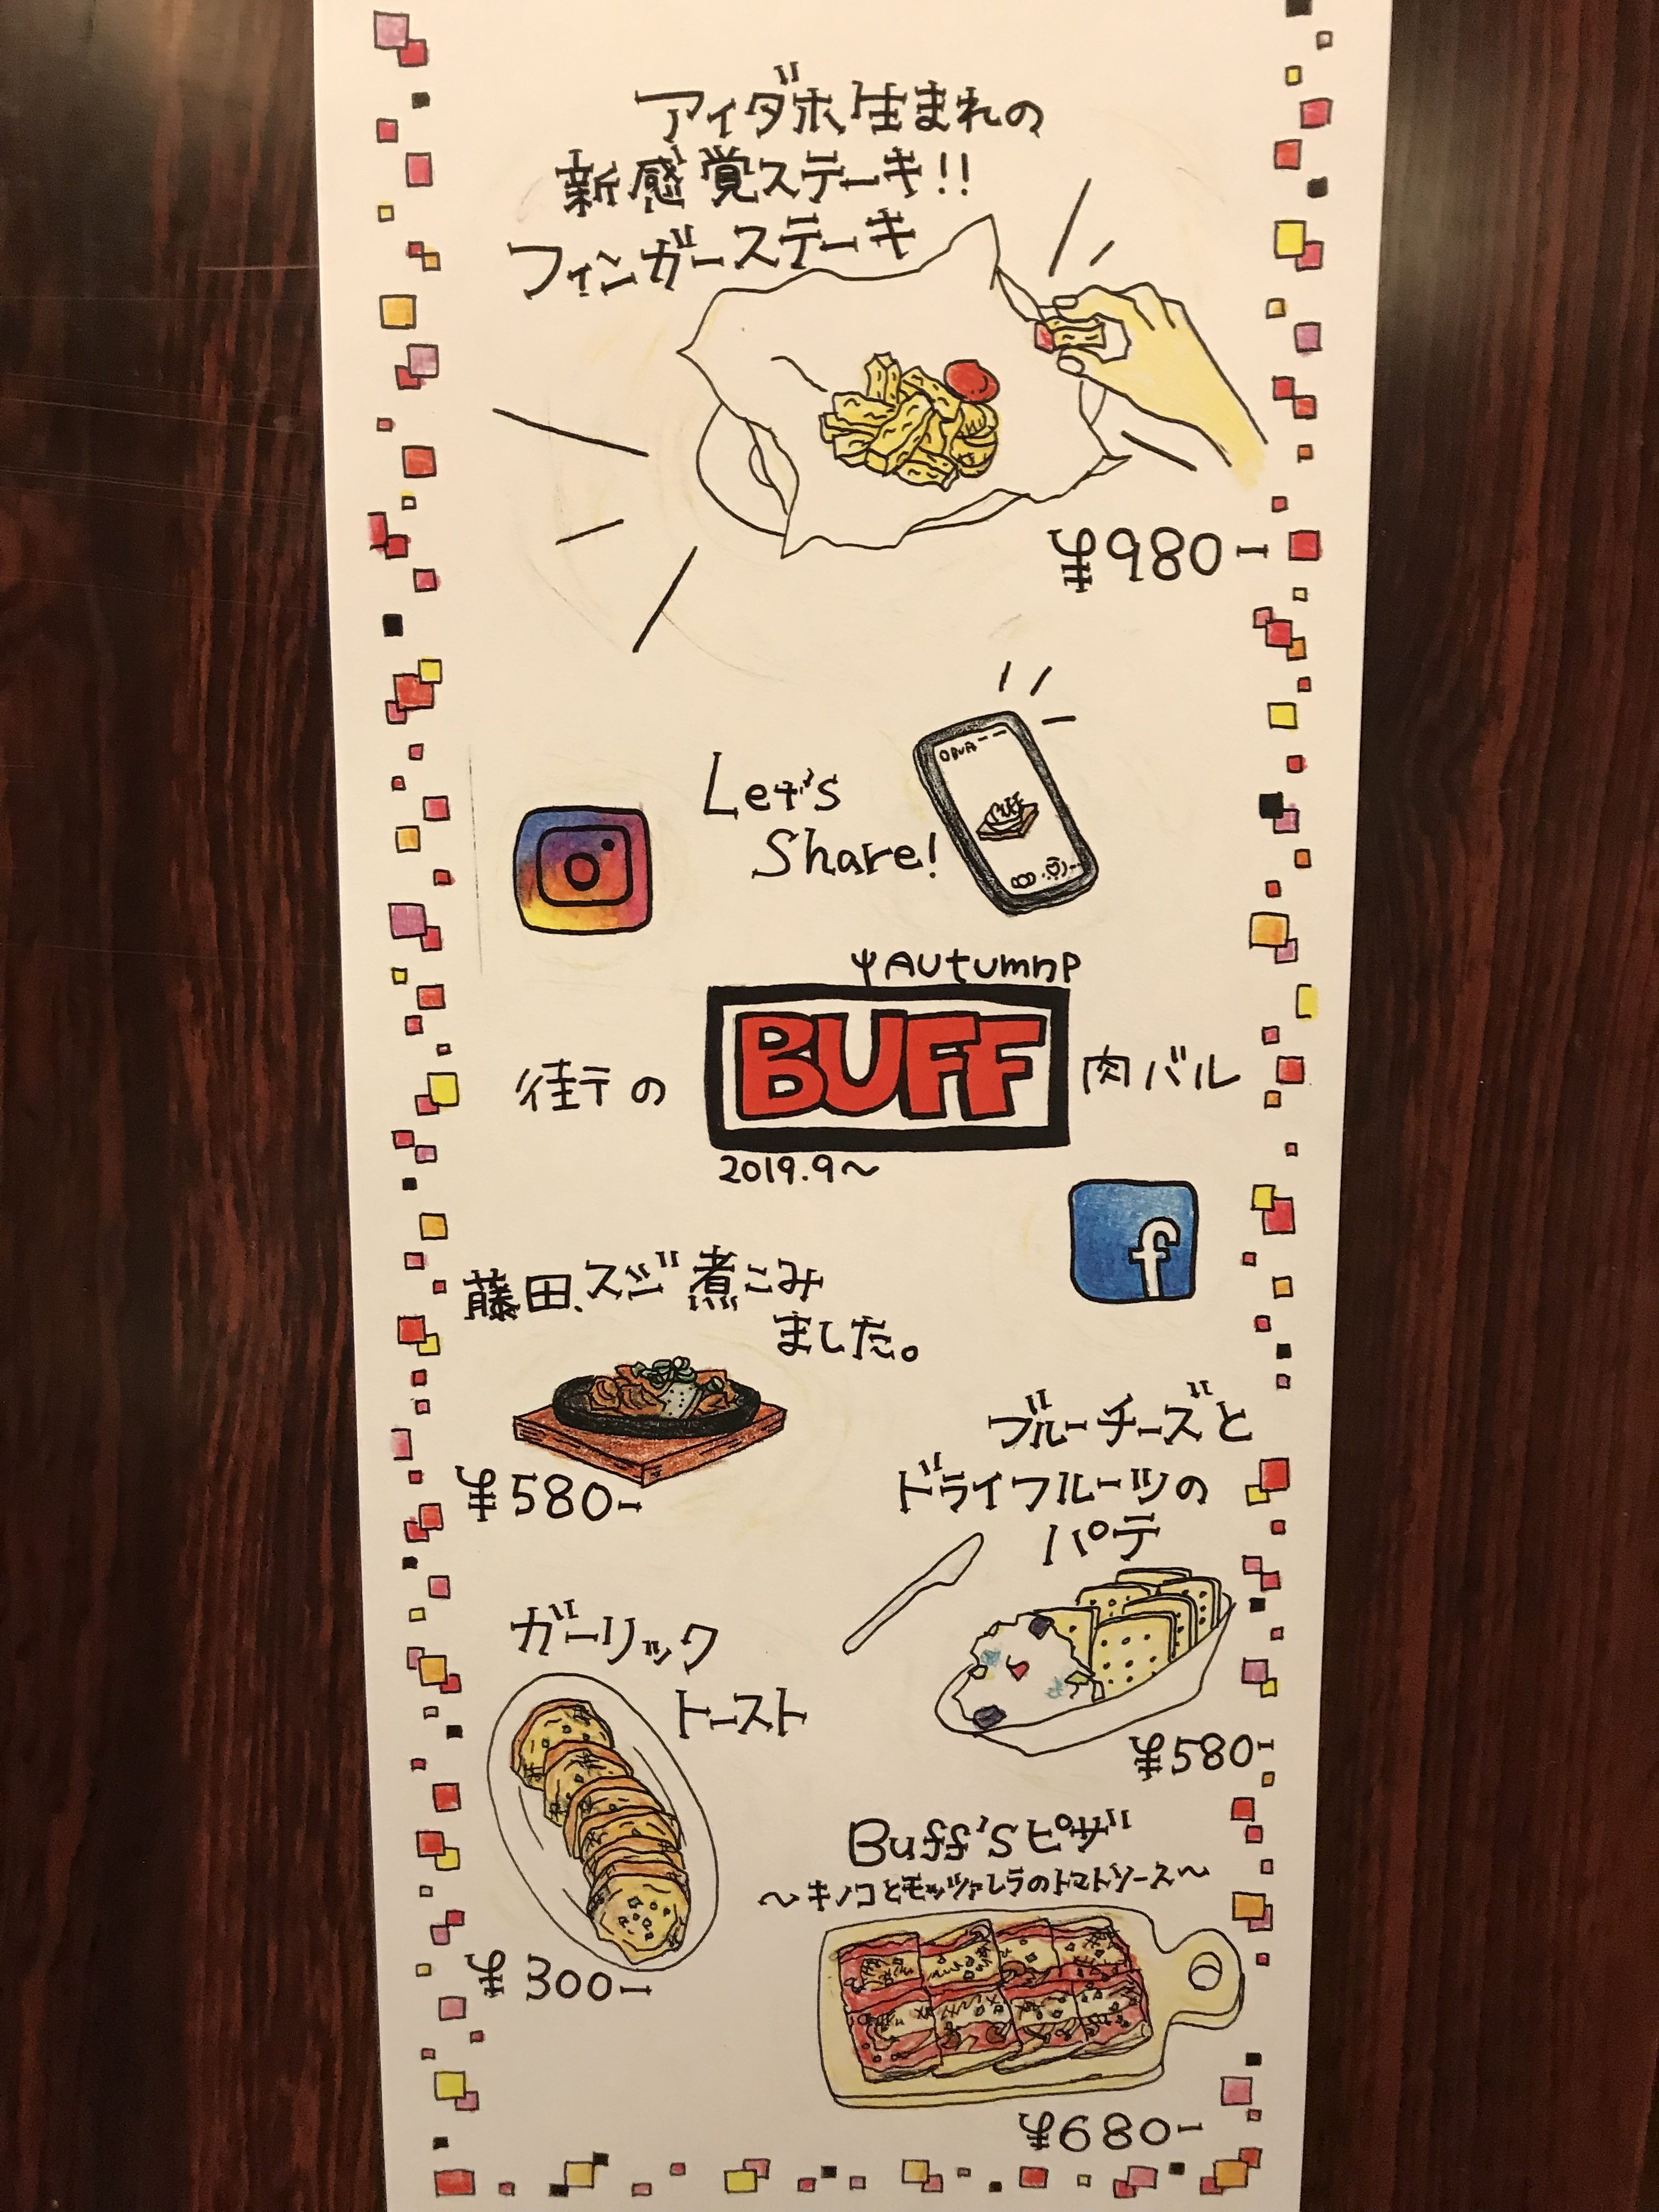 アイダホ生まれの
新感覚ステーキ!!
フィンガーステーキ
¥980-
Let's
Share!
BUFF
Autumn
街の
BUFF
肉バル
2019.9～
f
藤田、スジ煮こみ
ました。
¥580-
ブルーチーズと
ドライフルーツの
パテ
¥580-
ガーリック
トースト
¥300-
Buff'sピザ
～キノコとモッツァレラのトマトソース～
¥680-